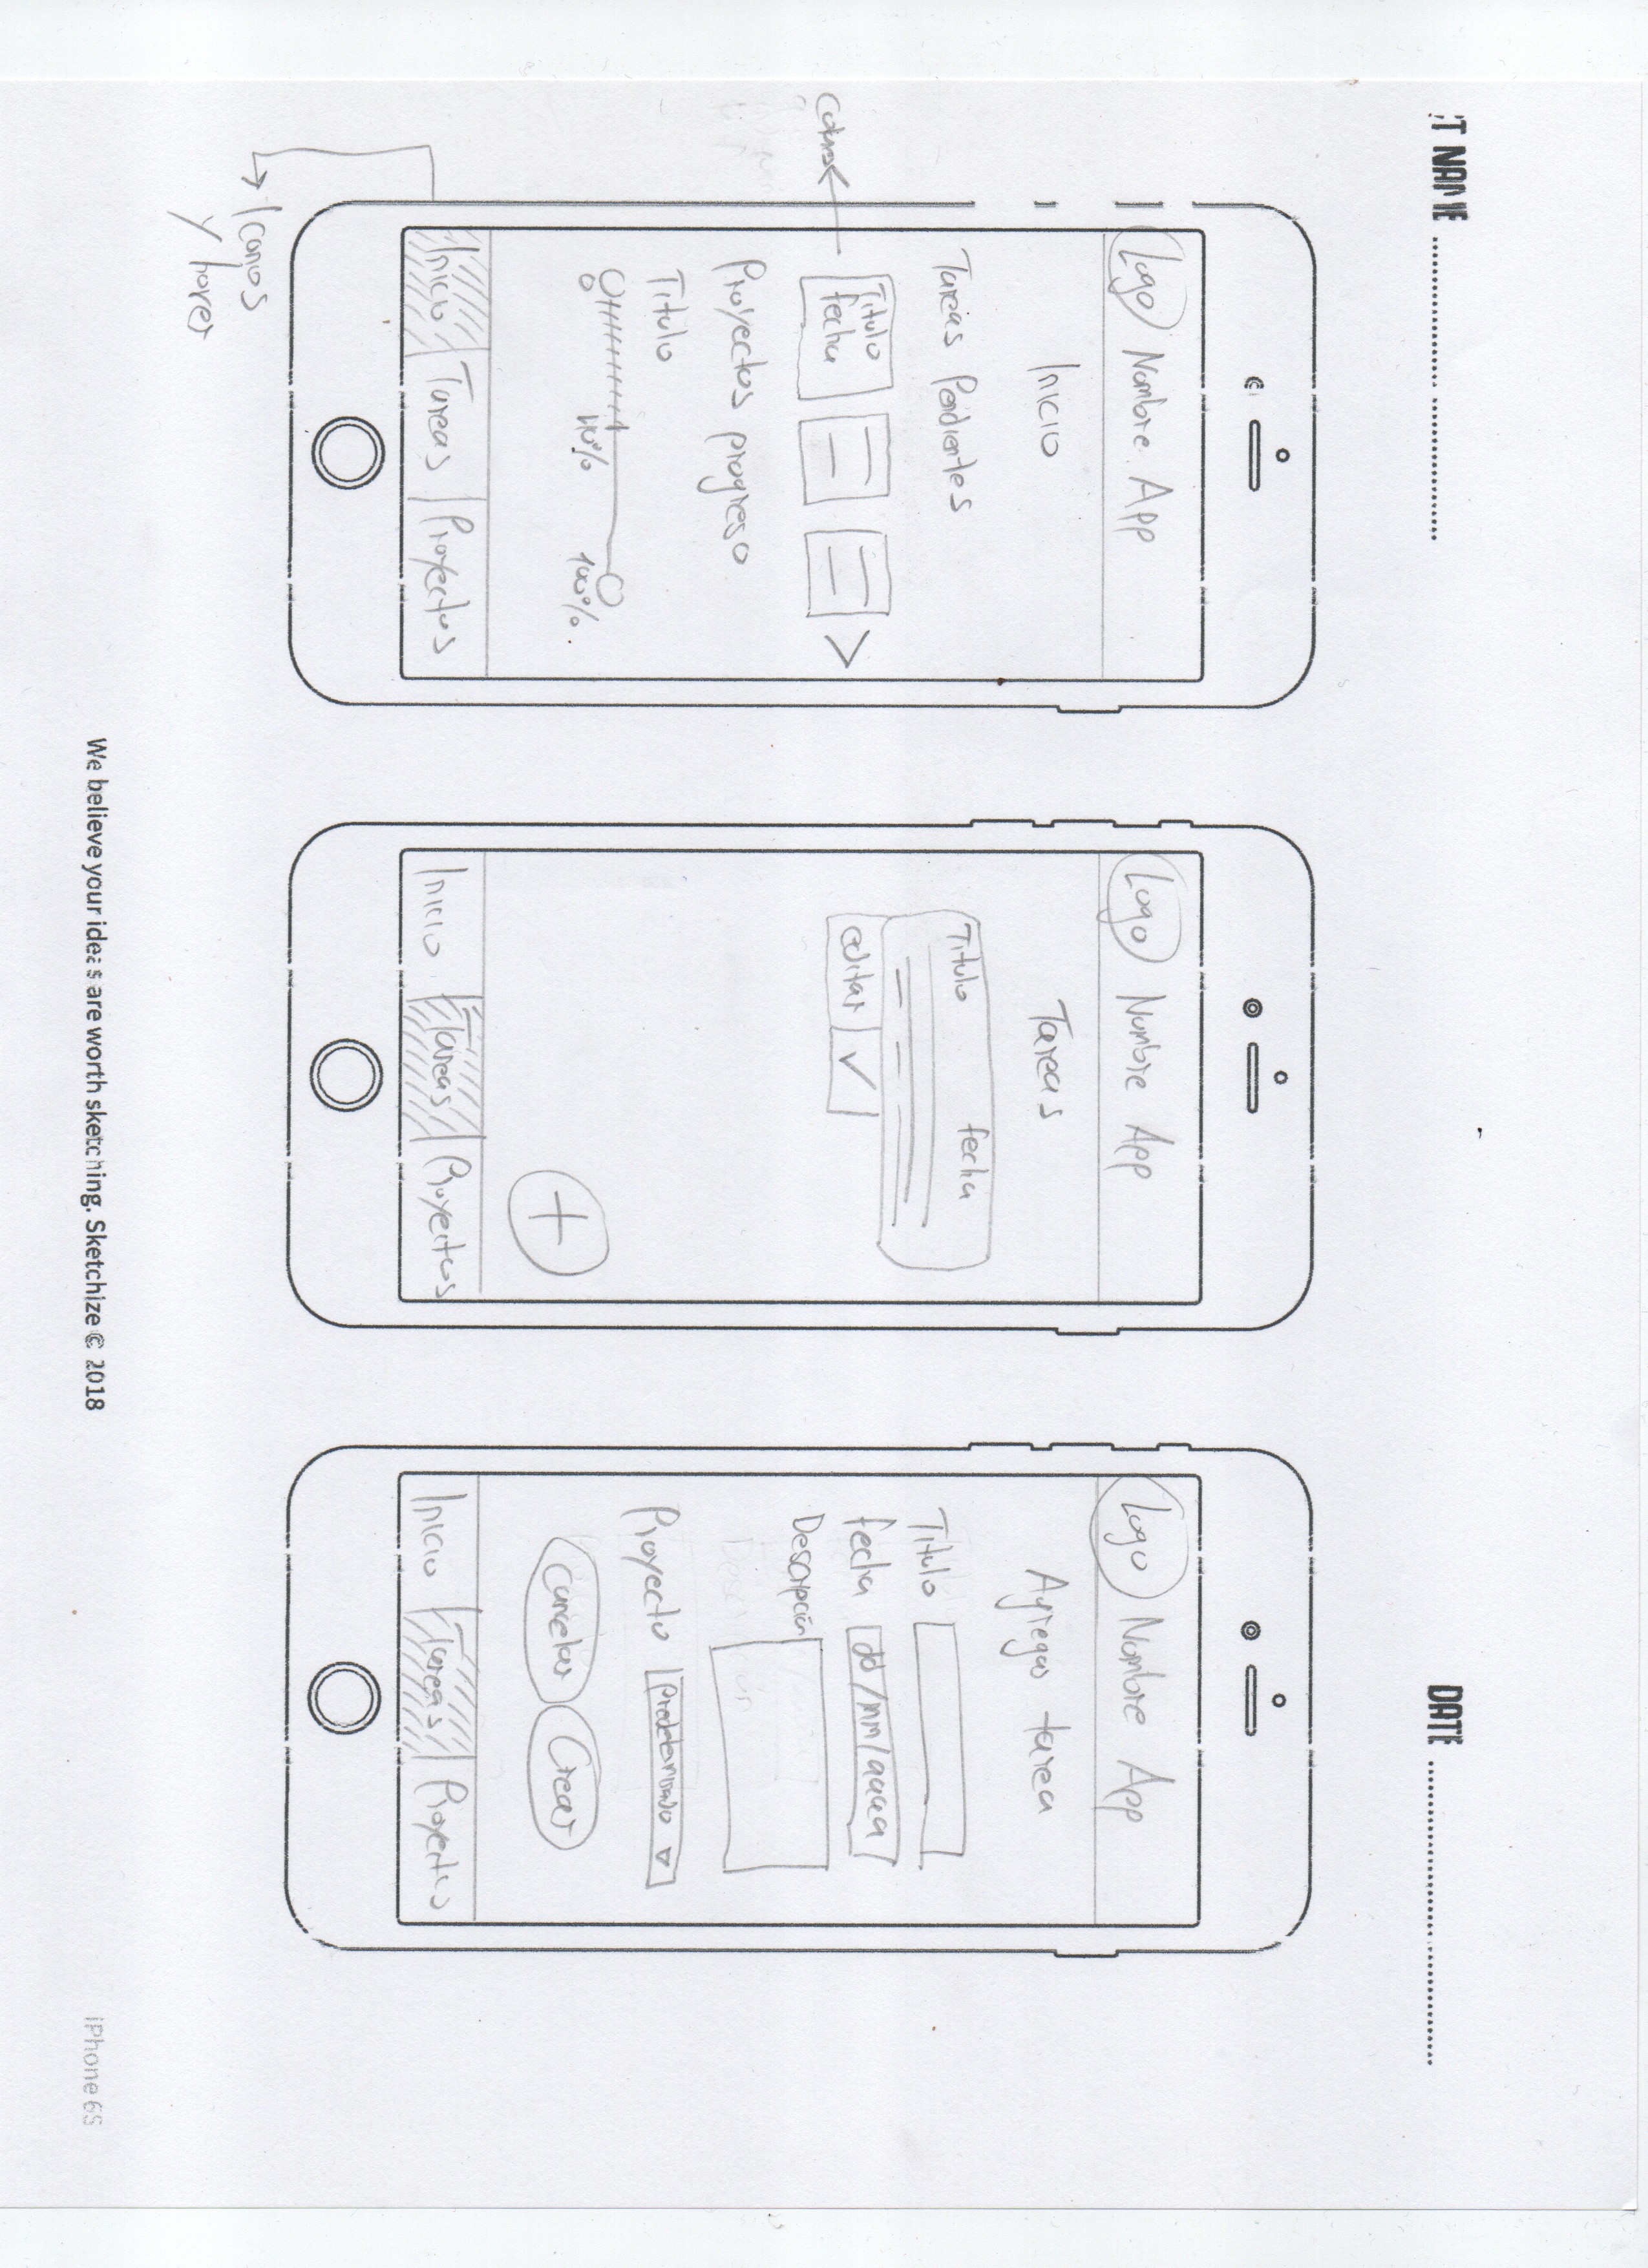 CT NAME
DATE
Logo Nombre App
Inicio
Tareas Pendientes
Titulo
fecha
>
Colores
Proyectos progreso
Titulo
0 40% 100%
Inicio Tareas Proyectos
Iconos
y hover
Logo Nombre App
Tareas
Titulo fecha
editar ✓
+
Inicio Tareas Proyectos
Logo Nombre App
Agregar tarea
Titulo
fecha dd/mm/aaaa
Descripción
Descripción
Proyecto predeterminado
cancelar Crear
Inicio Tareas Proyectos
We believe your ideas are worth sketching. Sketchize © 2018
iPhone 6S